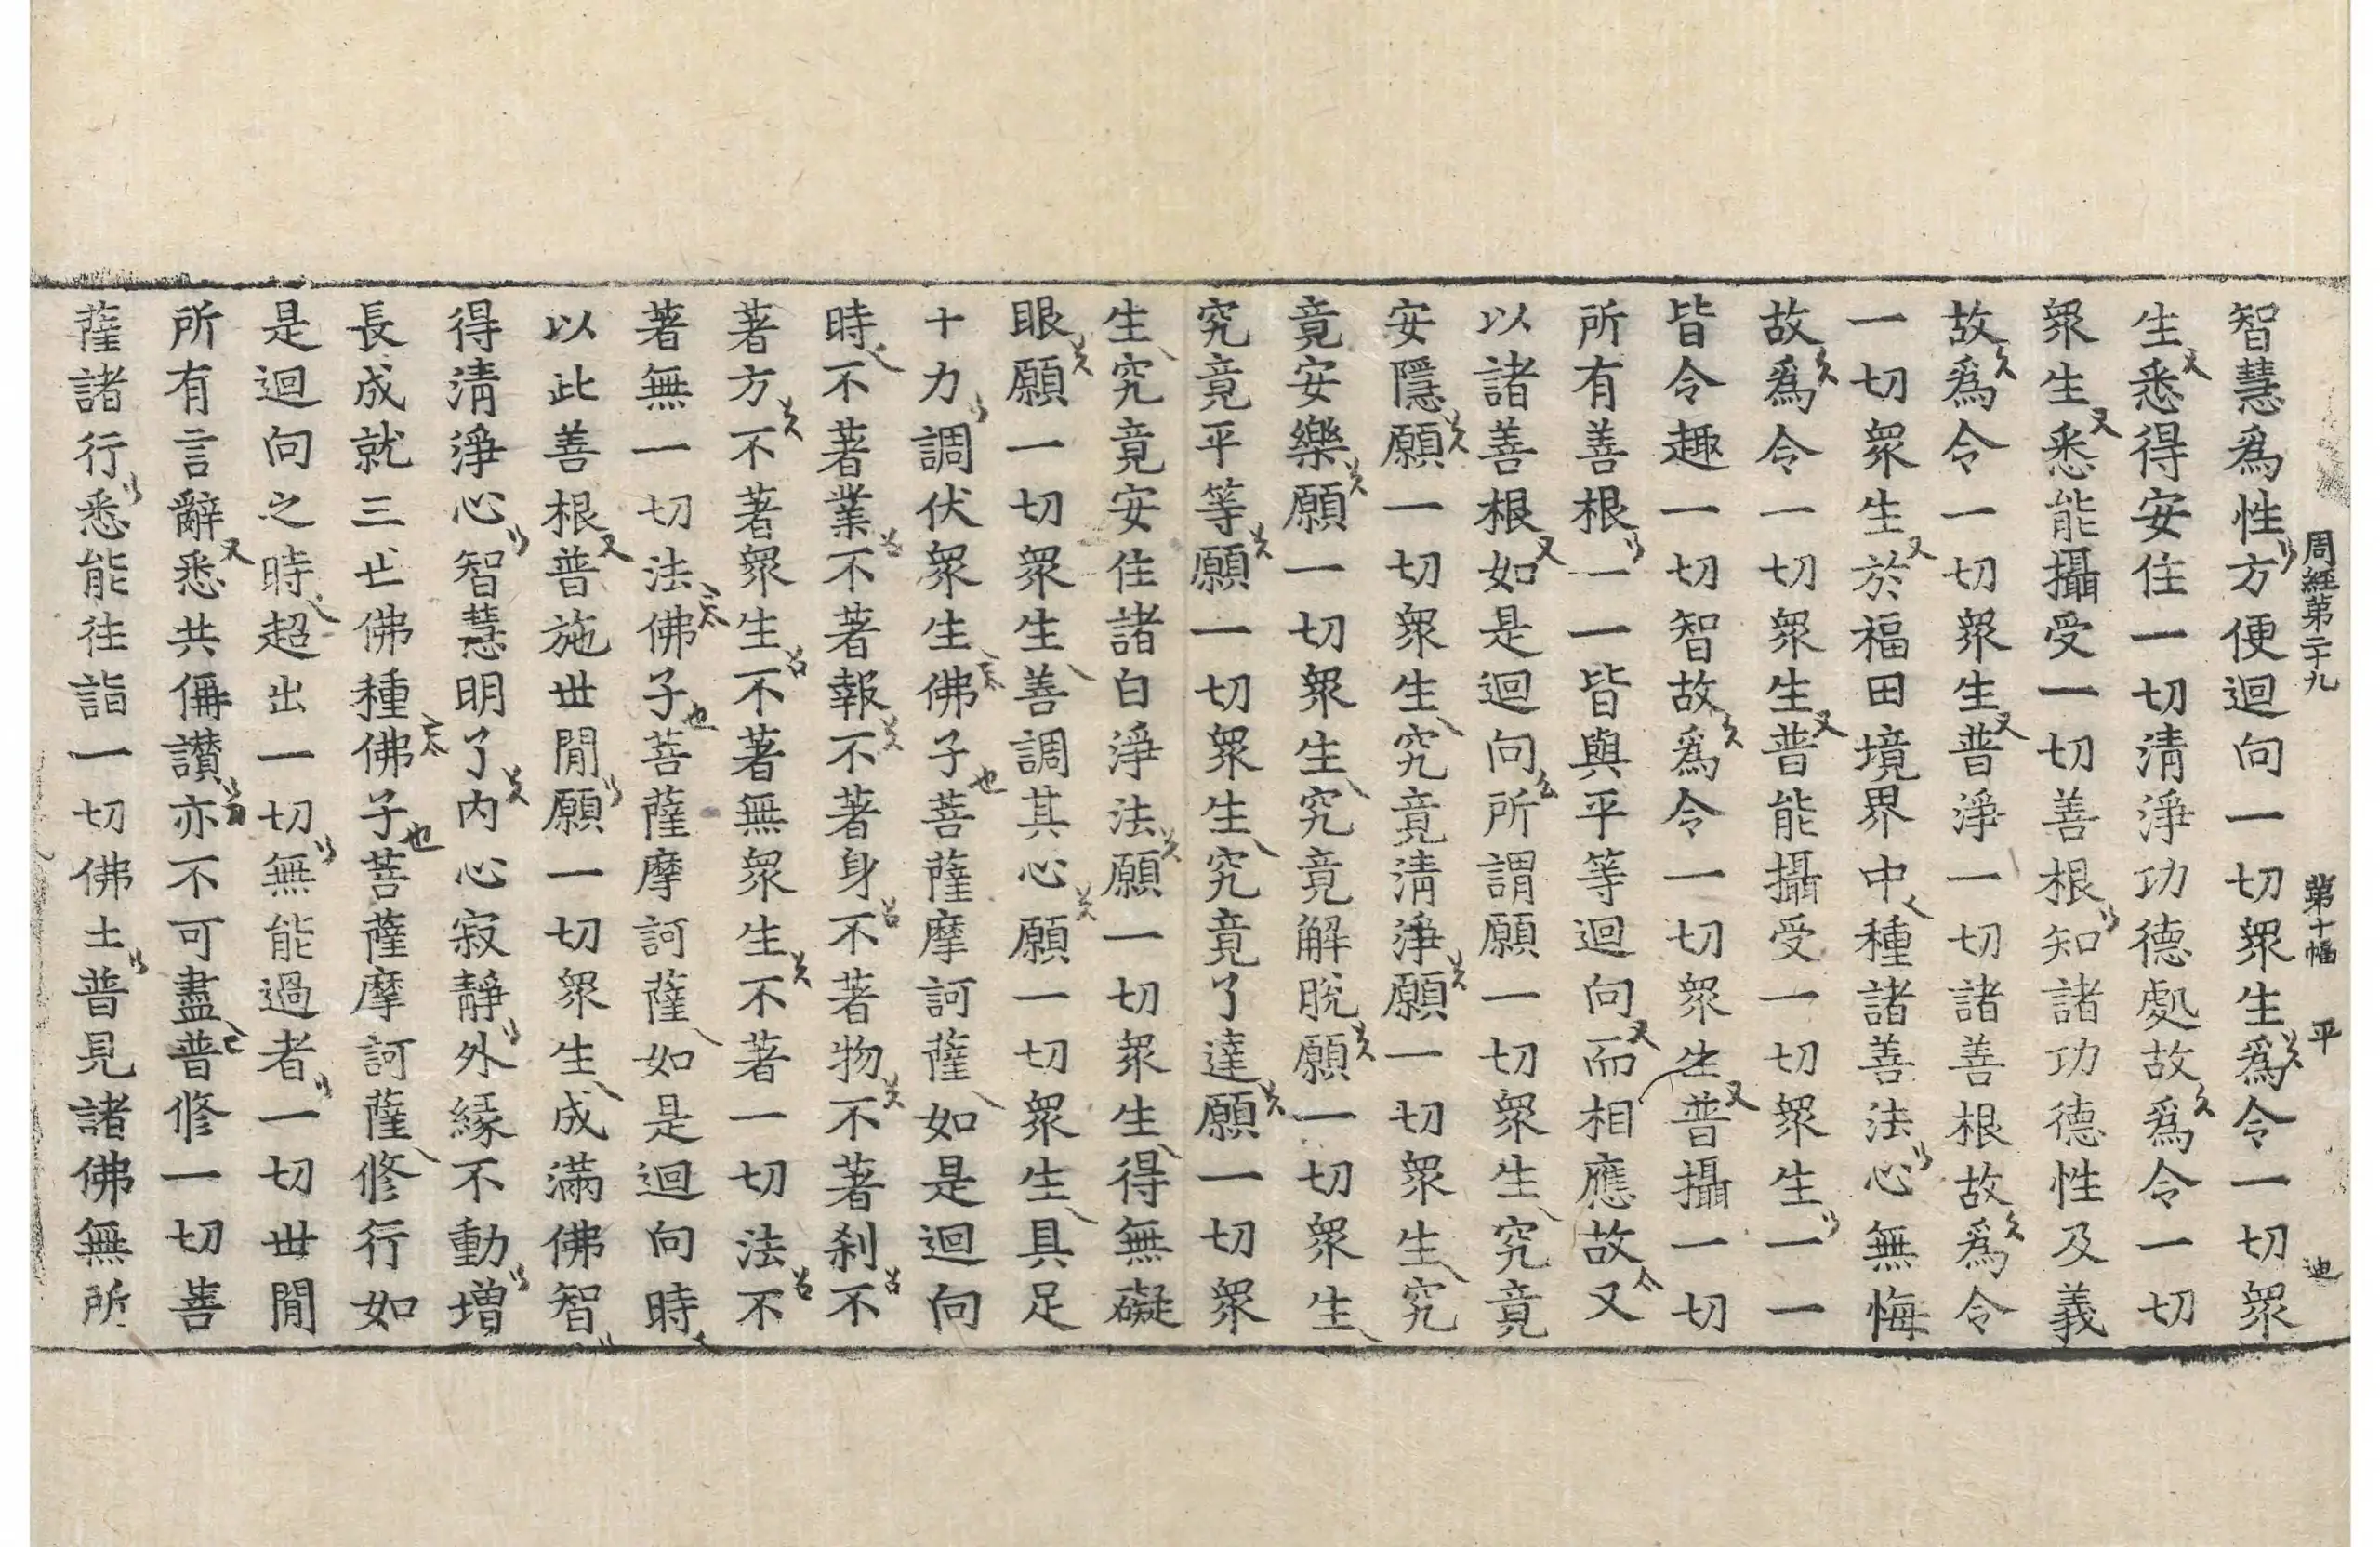 周經第二十九 第十幅 平 迪
智慧爲性方便迴向一切衆生爲令一切衆
生悉得安住一切清淨功德處故爲令一切
衆生悉能攝受一切善根知諸功德性及義
故爲令一切衆生普淨一切諸善根故爲令
一切衆生於福田境界中種諸善法心無悔
故爲令一切衆生普能攝受一切衆生一一
皆令趣一切智故爲令一切衆生普攝一切
所有善根一一皆與平等迴向而相應故又
以諸善根如是迴向所謂願一切衆生究竟
安隱願一切衆生究竟清淨願一切衆生究
竟安樂願一切衆生究竟解脫願一切衆生
究竟平等願一切衆生究竟了達願一切衆
生究竟安住諸白淨法願一切衆生得無礙
眼願一切衆生善調其心願一切衆生具足
十力調伏衆生佛子菩薩摩訶薩如是迴向
時不著業不著報不著身不著物不著刹不
著方不著衆生不著無衆生不著一切法不
著無一切法佛子菩薩摩訶薩如是迴向時
以此善根普施世間願一切衆生成滿佛智
得清淨心智慧明了內心寂靜外緣不動增
長成就三世佛種佛子菩薩摩訶薩修行如
是迴向之時超出一切無能過者一切世間
所有言辭悉共偁讃亦不可盡普修一切善
薩諸行悉能往詣一切佛土普見諸佛無所